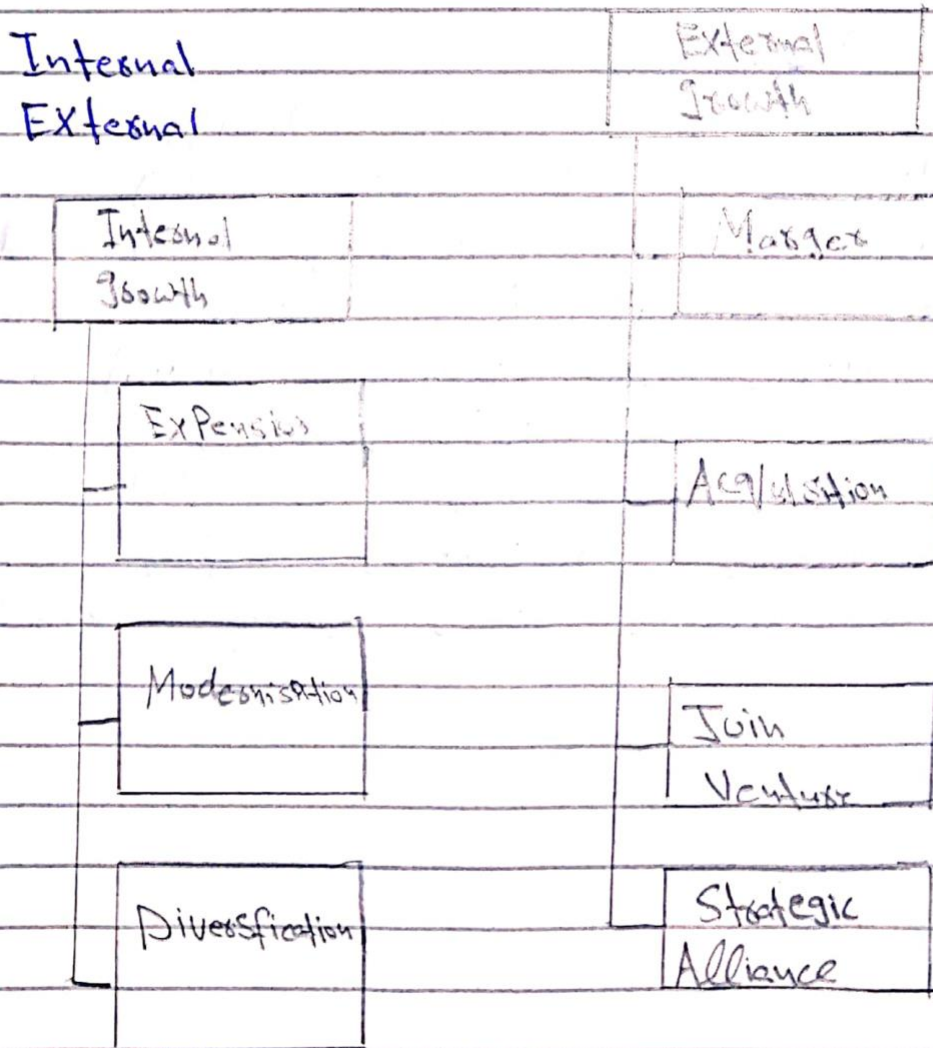 Internal
External
External
Growth
Internal
growth
Marger
ExPension
Acquisition
Modernisation
Join
Venture
Diversfication
Strategic
Alliance